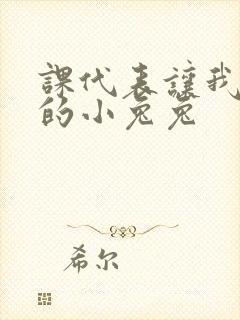 課代表讓我
的小兔兔
希尔